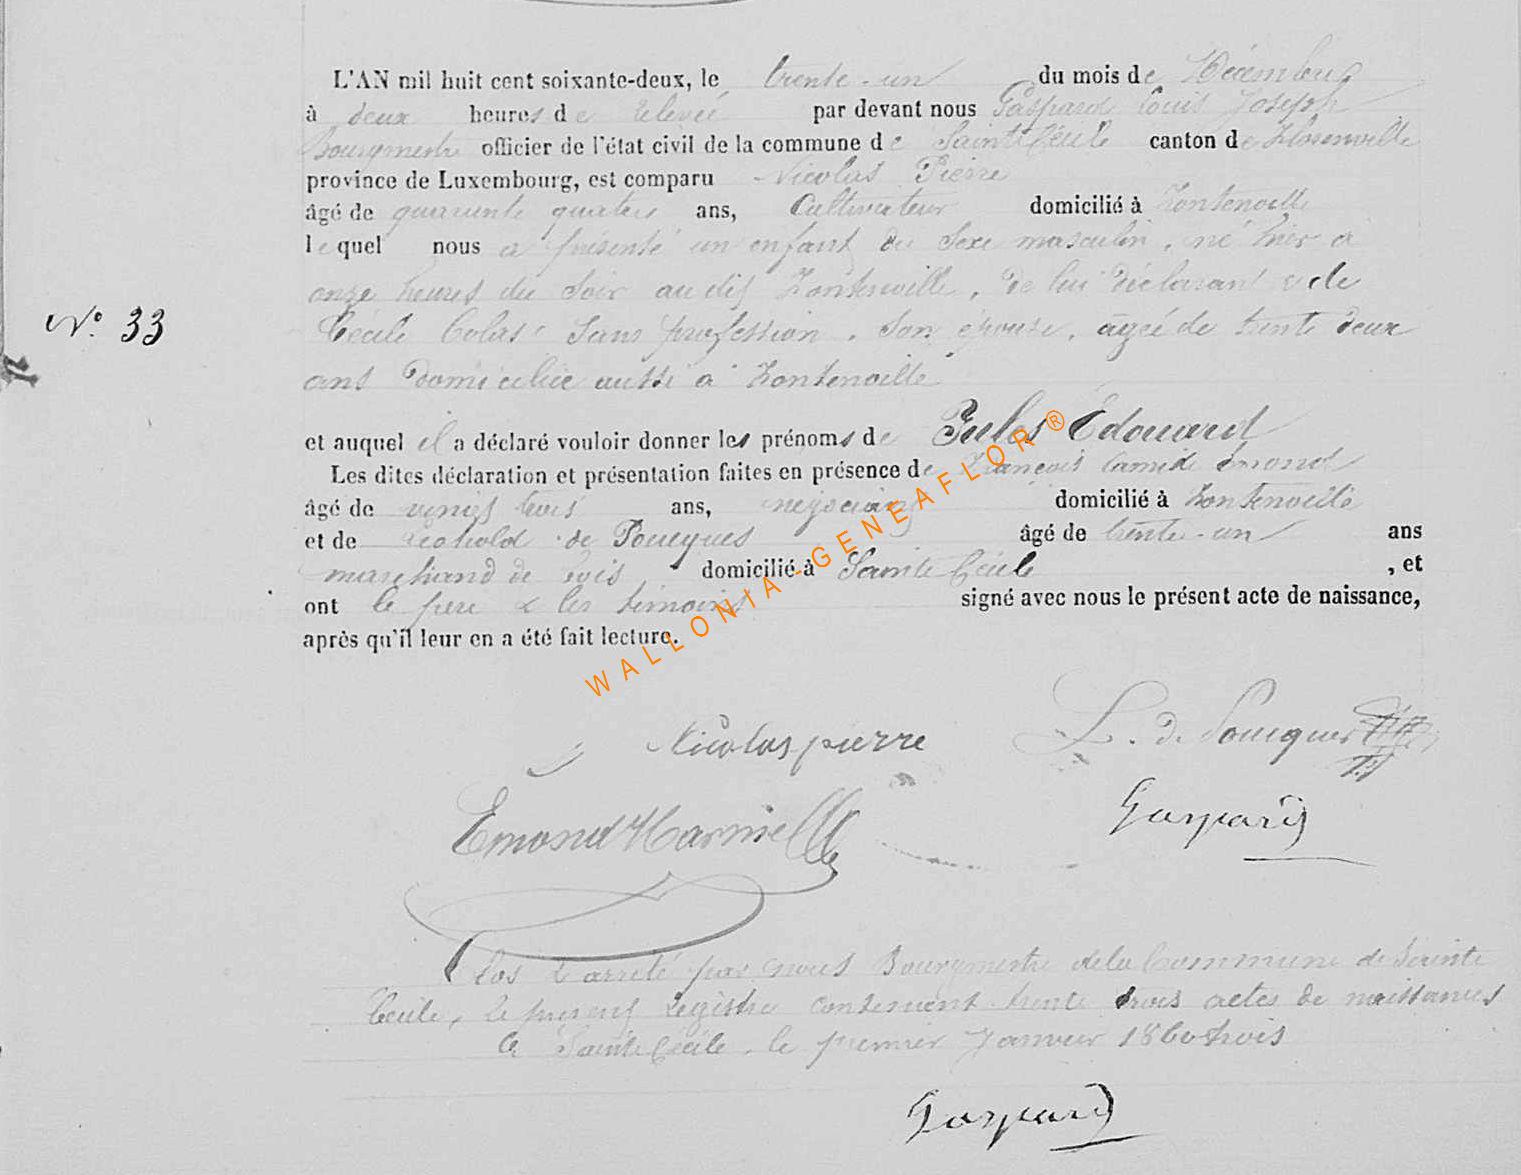 L'AN mil huit cent soixante-deux, le trente-un du mois de Décembre
à deux heures de relevée par devant nous Gaspard Louis Joseph
Bourgmestre officier de l'état civil de la commune de Sainte Cécile canton de Florenville
province de Luxembourg, est comparu Nicolas Pierre
âgé de quarante quatre ans, Cultivateur domicilié à Fontenoille
lequel nous a présenté un enfant du sexe masculin, né hier à
onze heures du soir au dit Fontenoille, de lui déclarant & de
Cécile Colas sans profession, son épouse, agée de trente deux
ans domiciliée aussi à Fontenoille
N° 33
et auquel il a déclaré vouloir donner les prénoms de Jules Édouard
Les dites déclaration et présentation faites en présence de François Camille Emond
âgé de vingt trois ans, négociant domicilié à Fontenoille
et de Léopold de Poucques âgé de trente-un ans
marchand de bois domicilié à Sainte Cécile, et
ont le père & les témoins signé avec nous le présent acte de naissance,
après qu'il leur en a été fait lecture.
WALLONIA-GENEAFLOR ®
Nicolas pierre L. de Poucques
Emond Gaspard
Clos & arrêté par nous Bourgmestre de la Commune de Sainte
Cécile, le présent Registre contenant trente trois actes de naissances
à Sainte Cécile, le premier Janvier 1860 trois
Gaspard